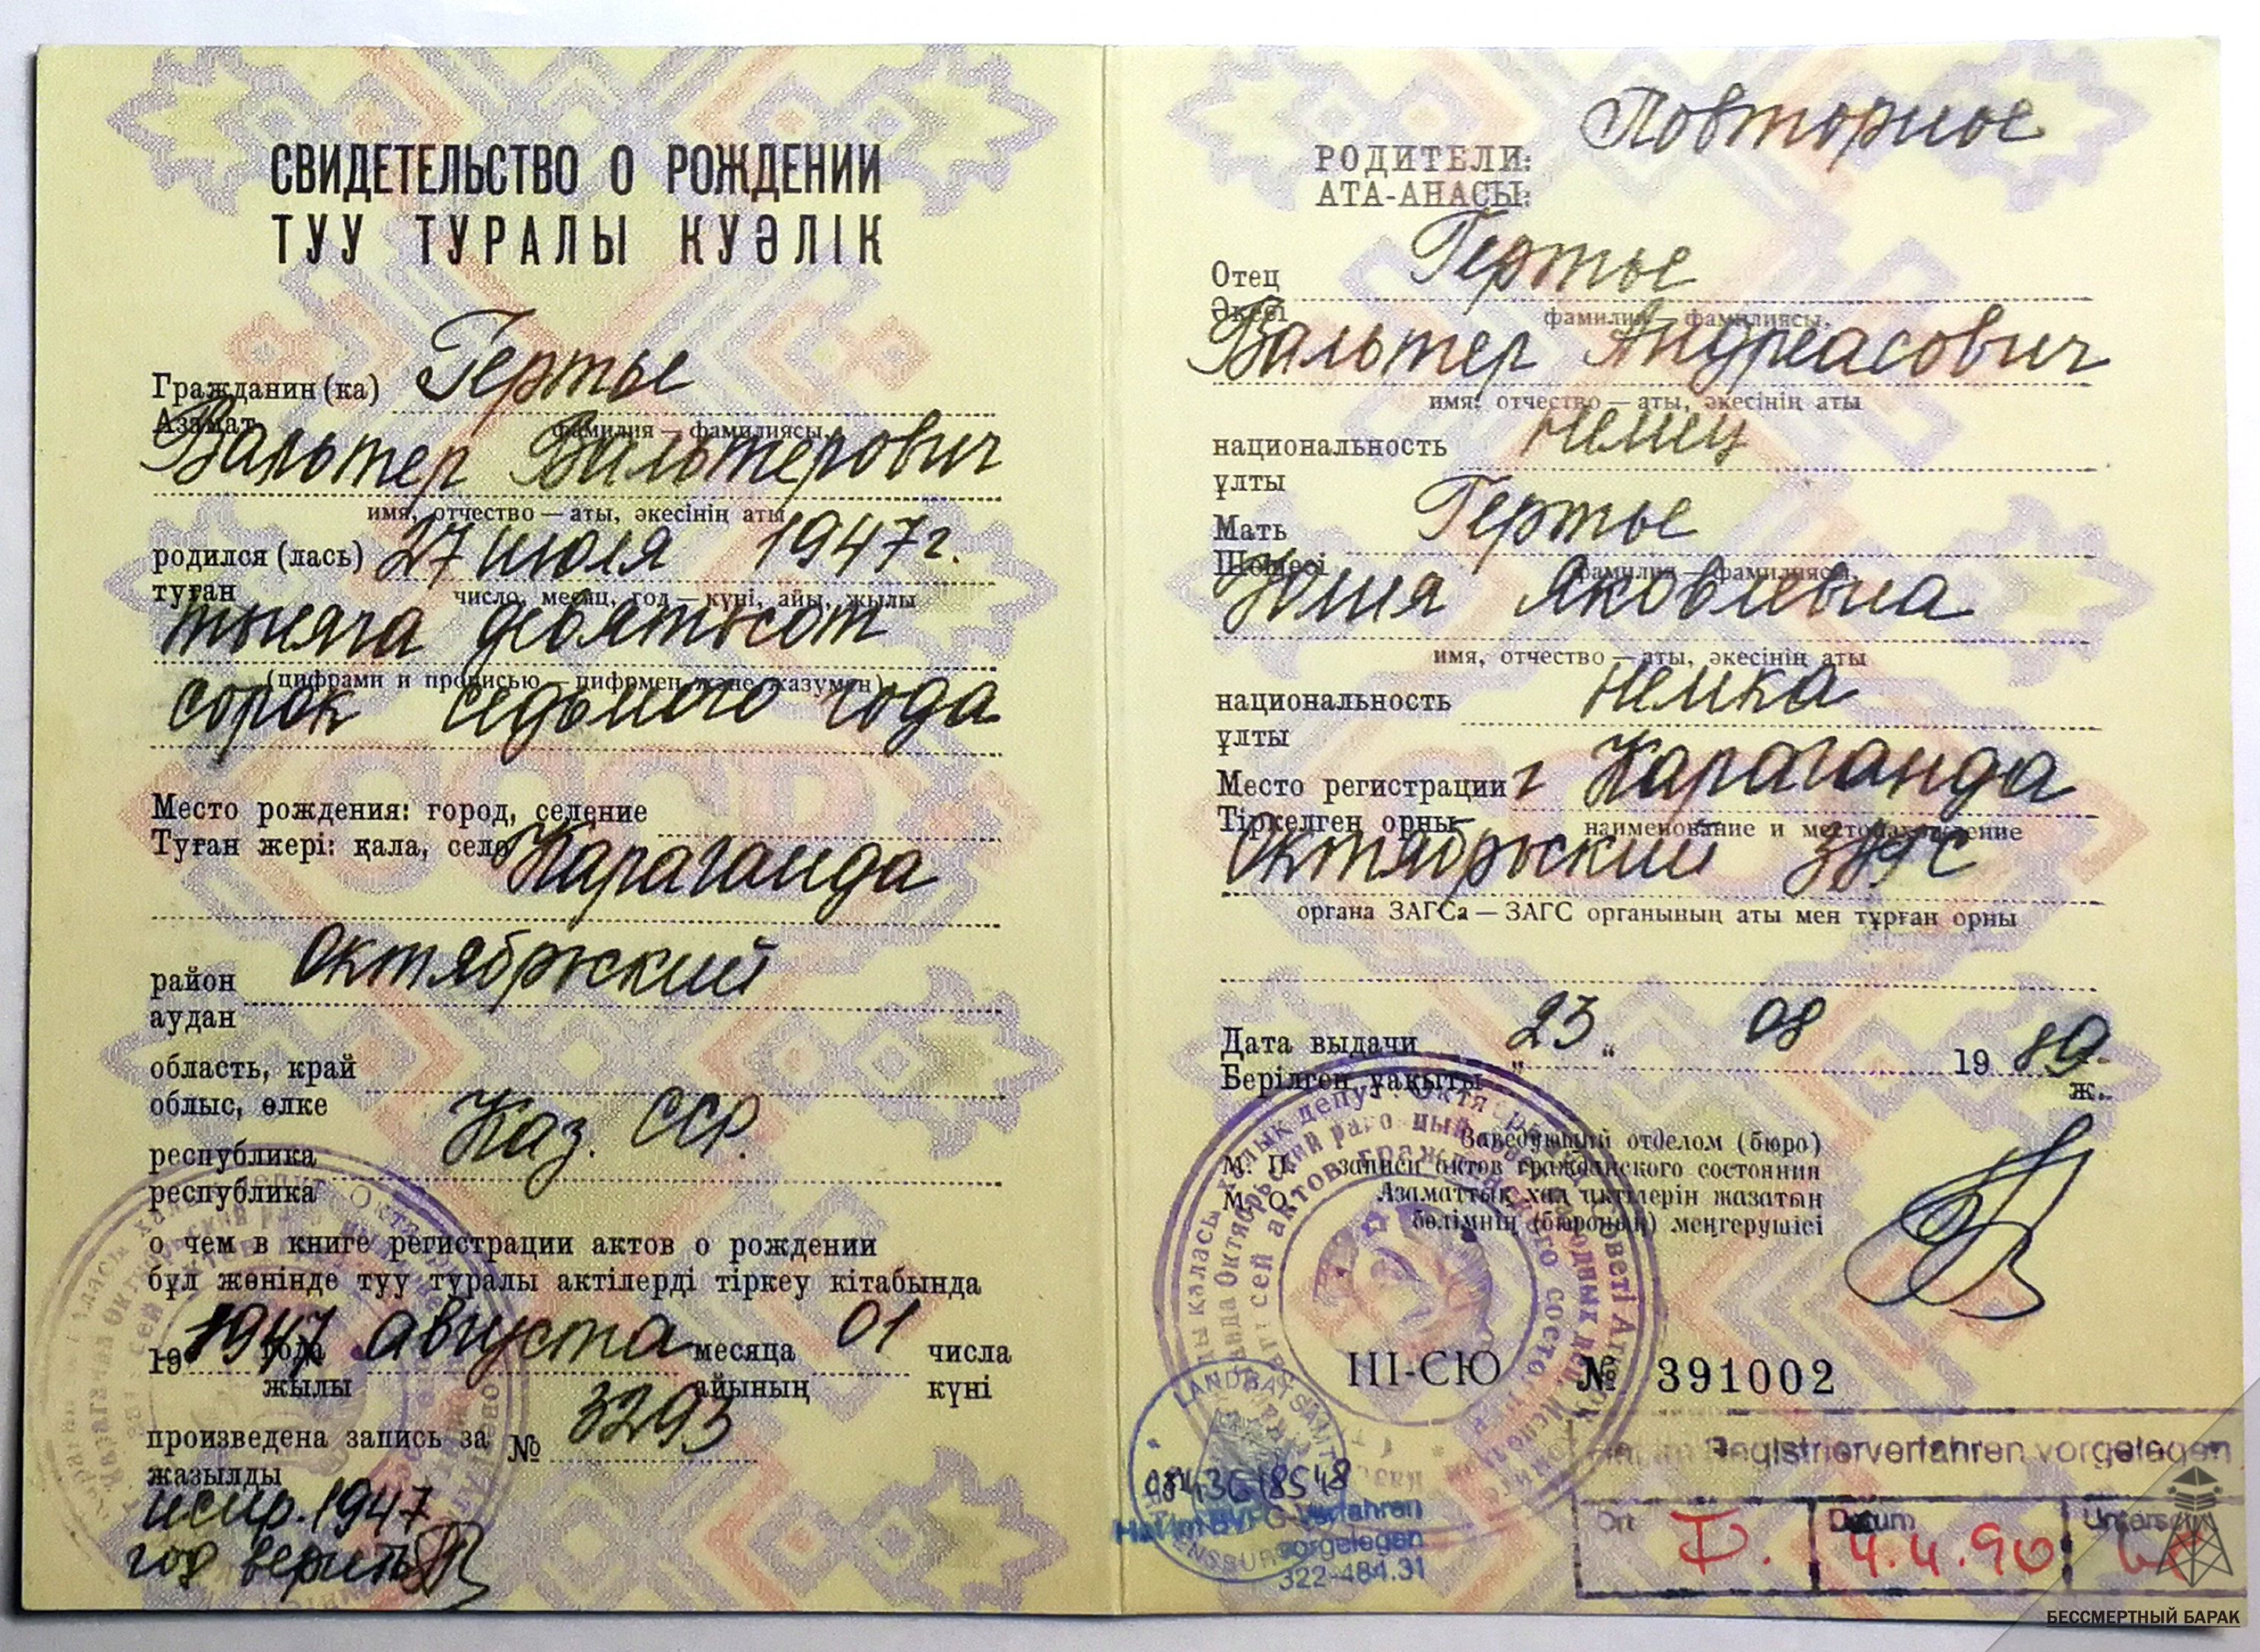 СВИДЕТЕЛЬСТВО О РОЖДЕНИИ
ТУУ ТУРАЛЫ КУӘЛІК
Гражданин (ка) Гертье
Азамат фамилия — фамилиясы,
Вальтер Вальтерович
имя, отчество — аты, әкесінің аты
родился (лась) 27 июля 1947 г.
туған число, месяц, год — күні, айы, жылы
тысяча девятьсот
(цифрами и прописью — цифрмен және жазумен)
сорок седьмого года
Место рождения: город, селение
Туған жері: қала, село Караганда
район Октябрьский
аудан
область, край
облыс, өлке
республика Каз. ССР.
республика
о чем в книге регистрации актов о рождении
бұл жөнінде туу туралы актілерді тіркеу кітабында
19 1947 года августа месяца 01 числа
жылы айының күні
произведена запись за № 3293
жазылды
испр. 1947
год верить
Повторное
РОДИТЕЛИ:
АТА-АНАСЫ:
Отец Гертье
Әкесі фамилия — фамилиясы,
Вальтер Андреасович
имя, отчество — аты, әкесінің аты
национальность немец
ұлты
Мать Гертье
Шешесі фамилия — фамилиясы,
Юлия Яковлевна
имя, отчество — аты, әкесінің аты
национальность немка
ұлты
Место регистрации г Караганда
Тіркелген орны наименование и местонахождение
Октябрьский ЗАГС
органа ЗАГСа — ЗАГС органының аты мен тұрған орны
Дата выдачи „ 23 “ 08 19 89 г.
Берілген уақыты ж.
Заведующий отделом (бюро)
М. П. записи актов гражданского состояния
М. О. Азаматтық хал актілерін жазатын
бөлімнің (бюроның) меңгерушісі
III-СЮ № 391002
LANDRATSAMT
0843618548
Hat im BVFG-Verfahren
vorgelegen
322-484.31
Hat im Registrierverfahren vorgelegen
Ort Datum Unterschr
F. 4.4.90
БЕССМЕРТНЫЙ БАРАК